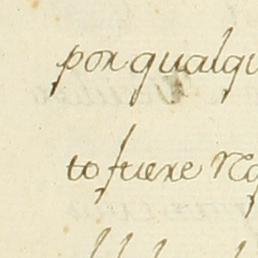 por qualqu
to fuere No